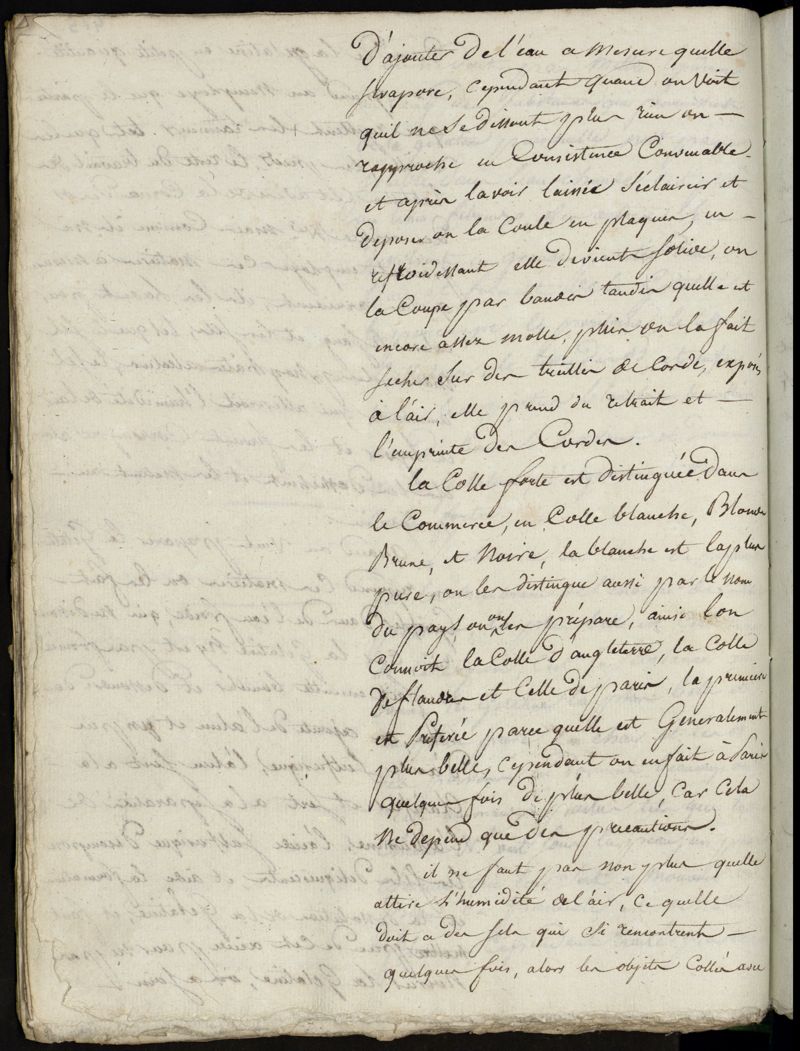 D'ajouter de l'eau a mesure quelle
sevapore, Cependant quand on voit
quil ne se dissout plus rien on —
rapproche en Consistence Convenable
et après lavoir laissée séclaircir et
deposer on la Coule en plaques, en —
refroidessant elle devient solide, on
la Coupe par bandes tandis quelle est
encore assez molle, puis on la fait
secher sur des treillis de Corde, exposés
à l'air, elle prend du retrait et —
l'empreinte des Cordes.
la Colle forte est distinguée dans
le Commerce, en Colle blanche, Blonde
Brune, et Noire, la blanche est la plus
pure, on les distingue aussi par le nom
du pays ou on les prépare, ainsi lon
Connoit la Colle d'angleterre, la Colle
de flandres et Celle de paris, la premiere
est Preferée parce quelle est Generalement
plus belle, Cependant on en fait à Paris
quelques fois de plus belle, Car Cela
ne depend que des precautions.
il ne faut pas non plus quelle
attire l'humidité de l'air, Ce quelle
doit a des sels qui si rencontrent —
quelques fois, alors les objets Collés avec